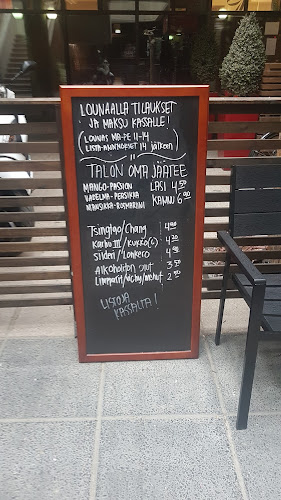 LOUNAALLA TILAUKSET
JA MAKSU KASSALLE!
(LOUNAS MA-PE 11-14
LISTA-ANNOKSET 14 jälkeen)
"
TALON OMA JÄÄTEE
MANGO-PASSION LASI 4.50
VADELMA-PERSIKKA KANNU 6.90
MANSIKKA-ROSMARIINI
Tsingtao/Chang 4.90
Karhu III/Kukko(G) 4.20
Siideri/Lonkero 4.90
Alkoholiton olut 3.50
Limpparit/vichy/mehut 2.90
LISTOJA
KASSALTA!